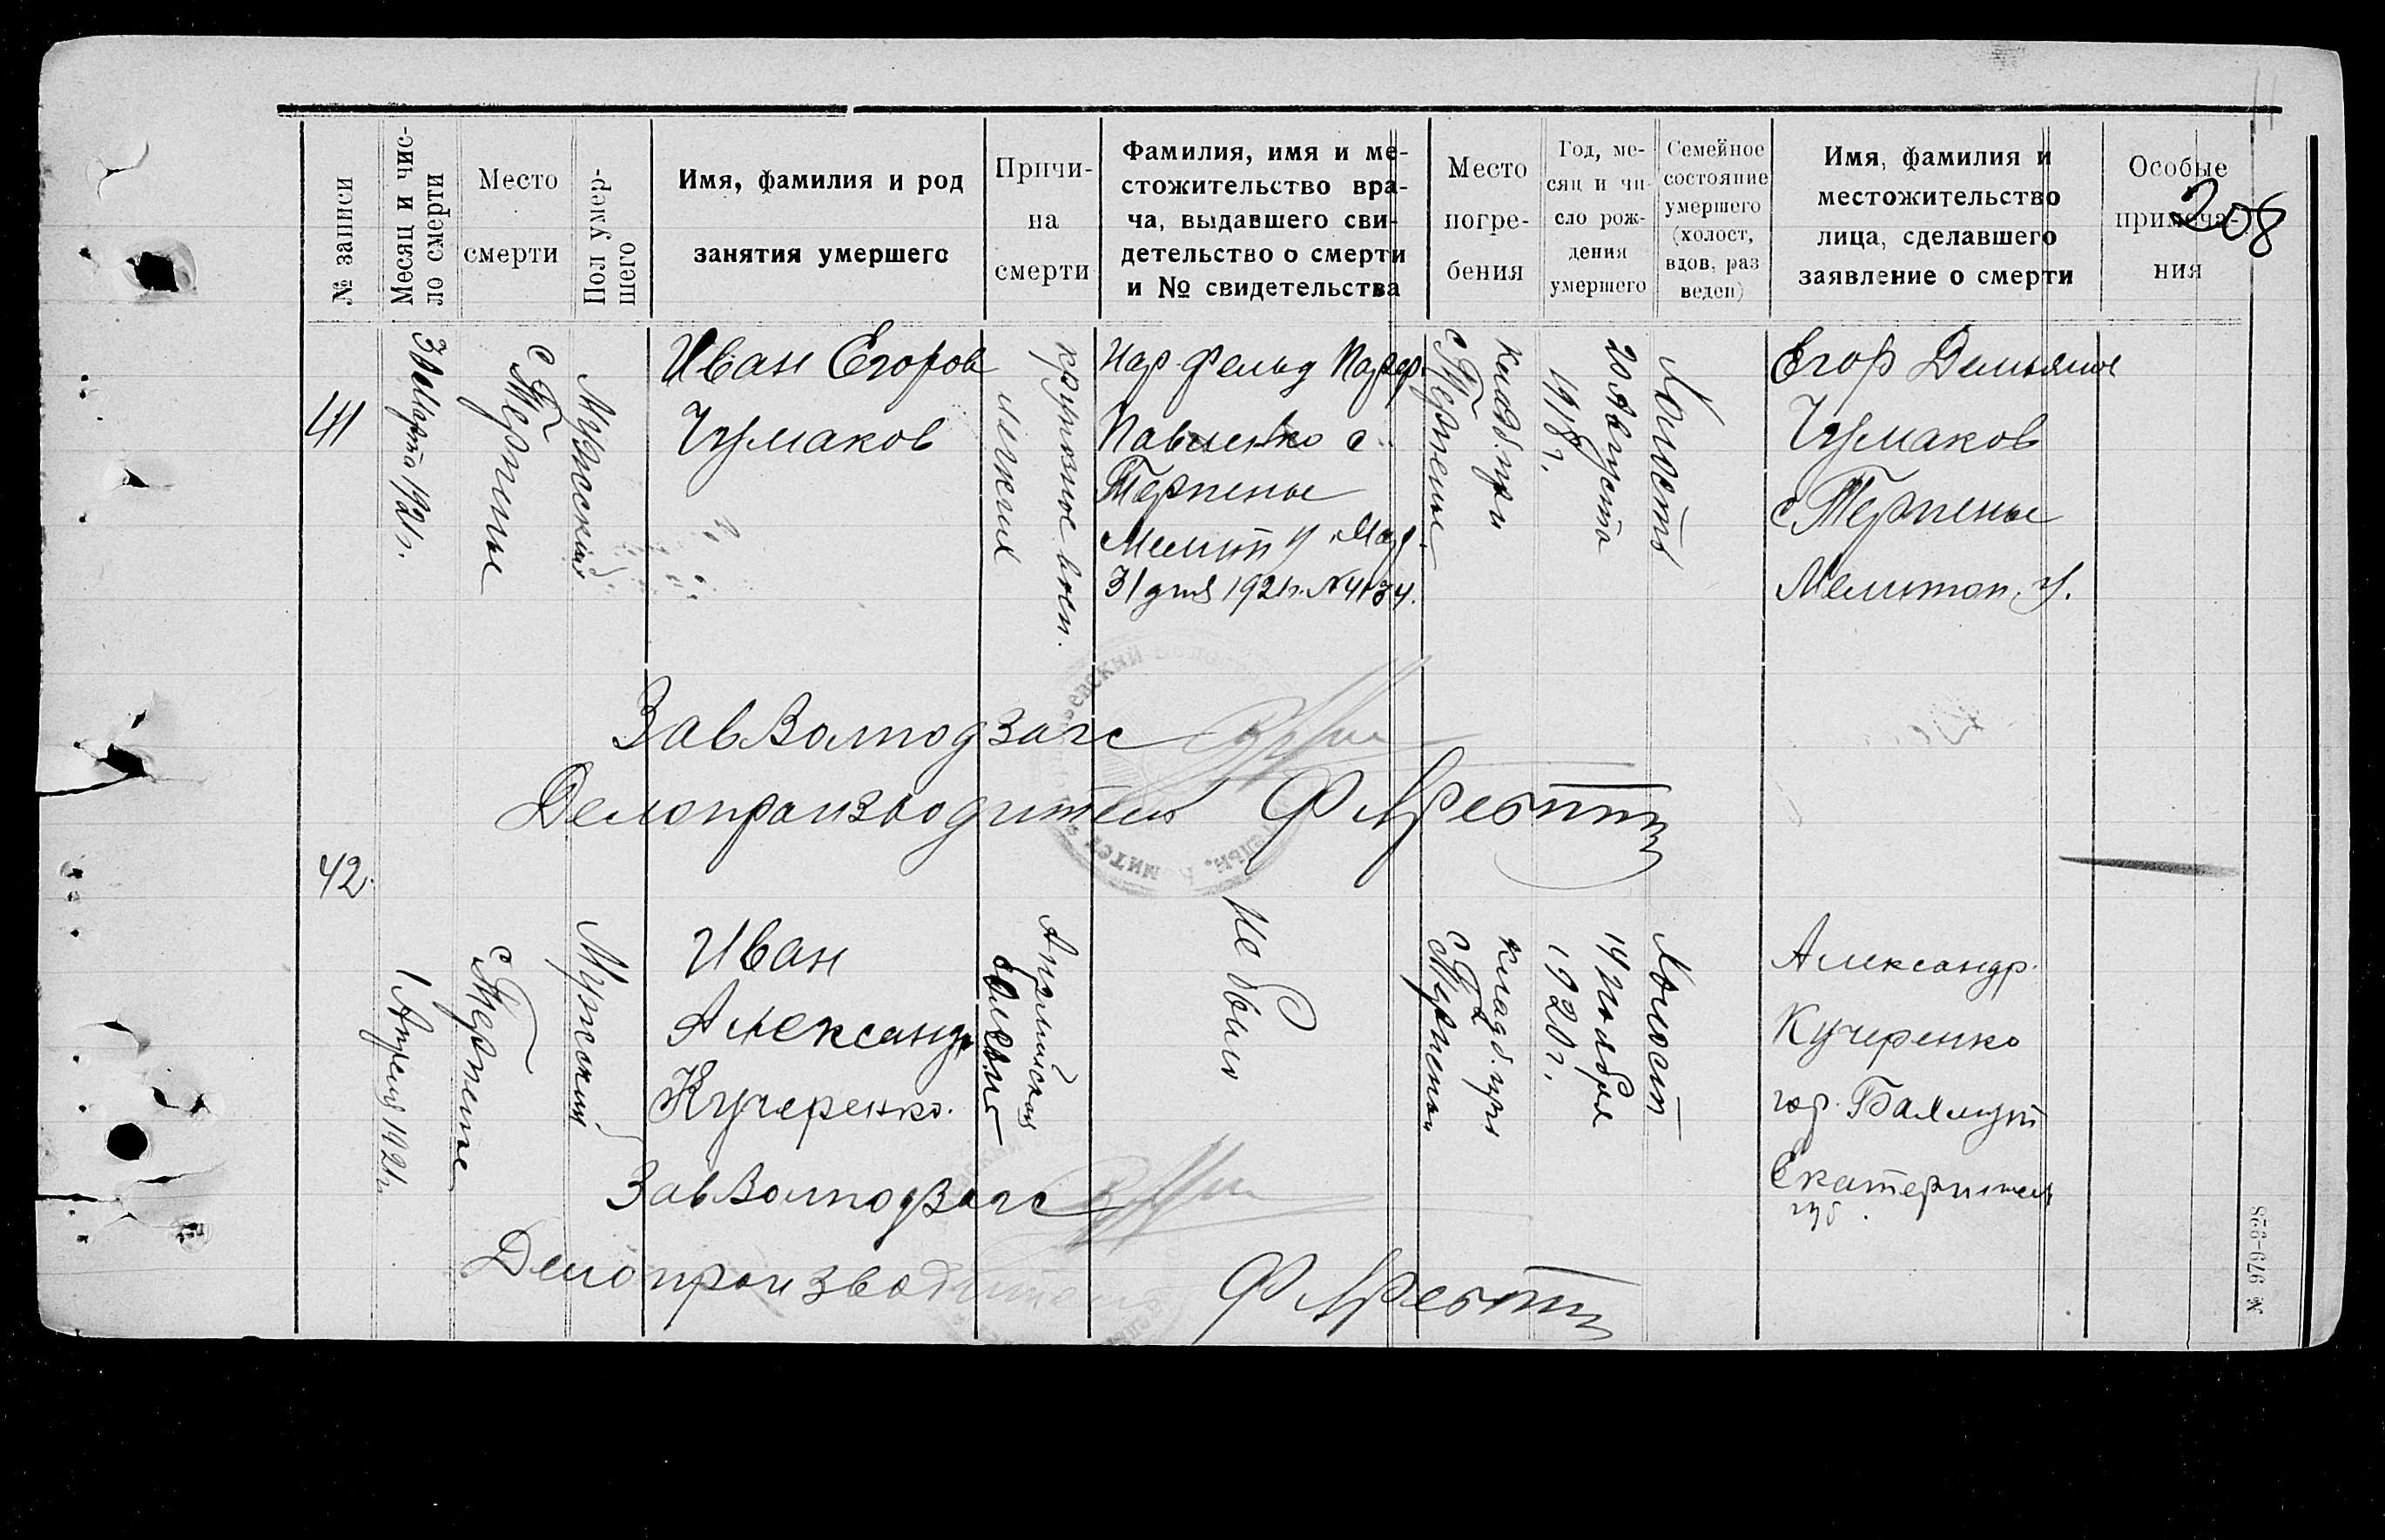 208
№ записи
Месяц и чис-
ло смерти
Место
смерти
Пол умер-
шего
Имя, фамилия и род
занятия умершего
Причи-
на
смерти
Фамилия, имя и ме-
стожительство вра-
ча, выдавшего сви-
детельство о смерти
и № свидетельства
Место
погре-
бения
Год, ме-
сяц и чи-
сло рож-
дения
умершего
Семейное
состояние
умершего
(холост,
вдов, раз
веден)
Имя, фамилия и
местожительство
лица, сделавшего
заявление о смерти
Особые
примеча-
ния
41
Марта 1921 г.
с Терпенье
Мужской
Иван Егоров
Чумаков
крупозное восп.
легких
Фельд
Павленко с.
Терпенье
Мелит у
31 дня 1921 г. № 434.
кладб. при
с Терпенье
20 Августа
1918 г.
Холост
Егор Демьянов
Чумаков
с Терпенье
Мелитоп. У.
ЗавВолподзагс
Делопроизводитель
42.
1 Апреля 1921 г.
с Терпенье
Мужский
Иван
Александр
Кучеренко.
Английская
болезнь
не было
кладб. при
с Терпенье
14 Ноября
1920 г.
Холост
Александр.
Кучеренко
гор. Бахмут
Екатеринос
губ.
ЗавВолподзагс
Делопроизводитель
№ 979-928